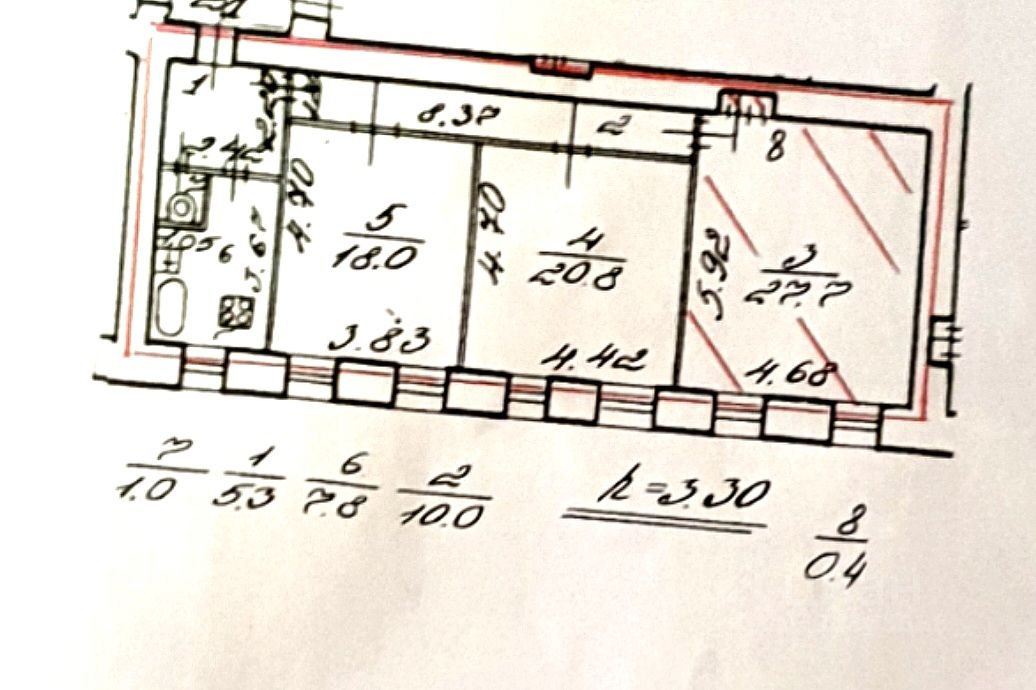 1
8.37
2
8
2.42
4.70
4.70
5
18.0
4
20.8
5.92
3
27.7
6
3.67
3.83
4.42
4.68
7
1.0
1
5.3
6
7.8
2
10.0
h=3.30
8
0.4